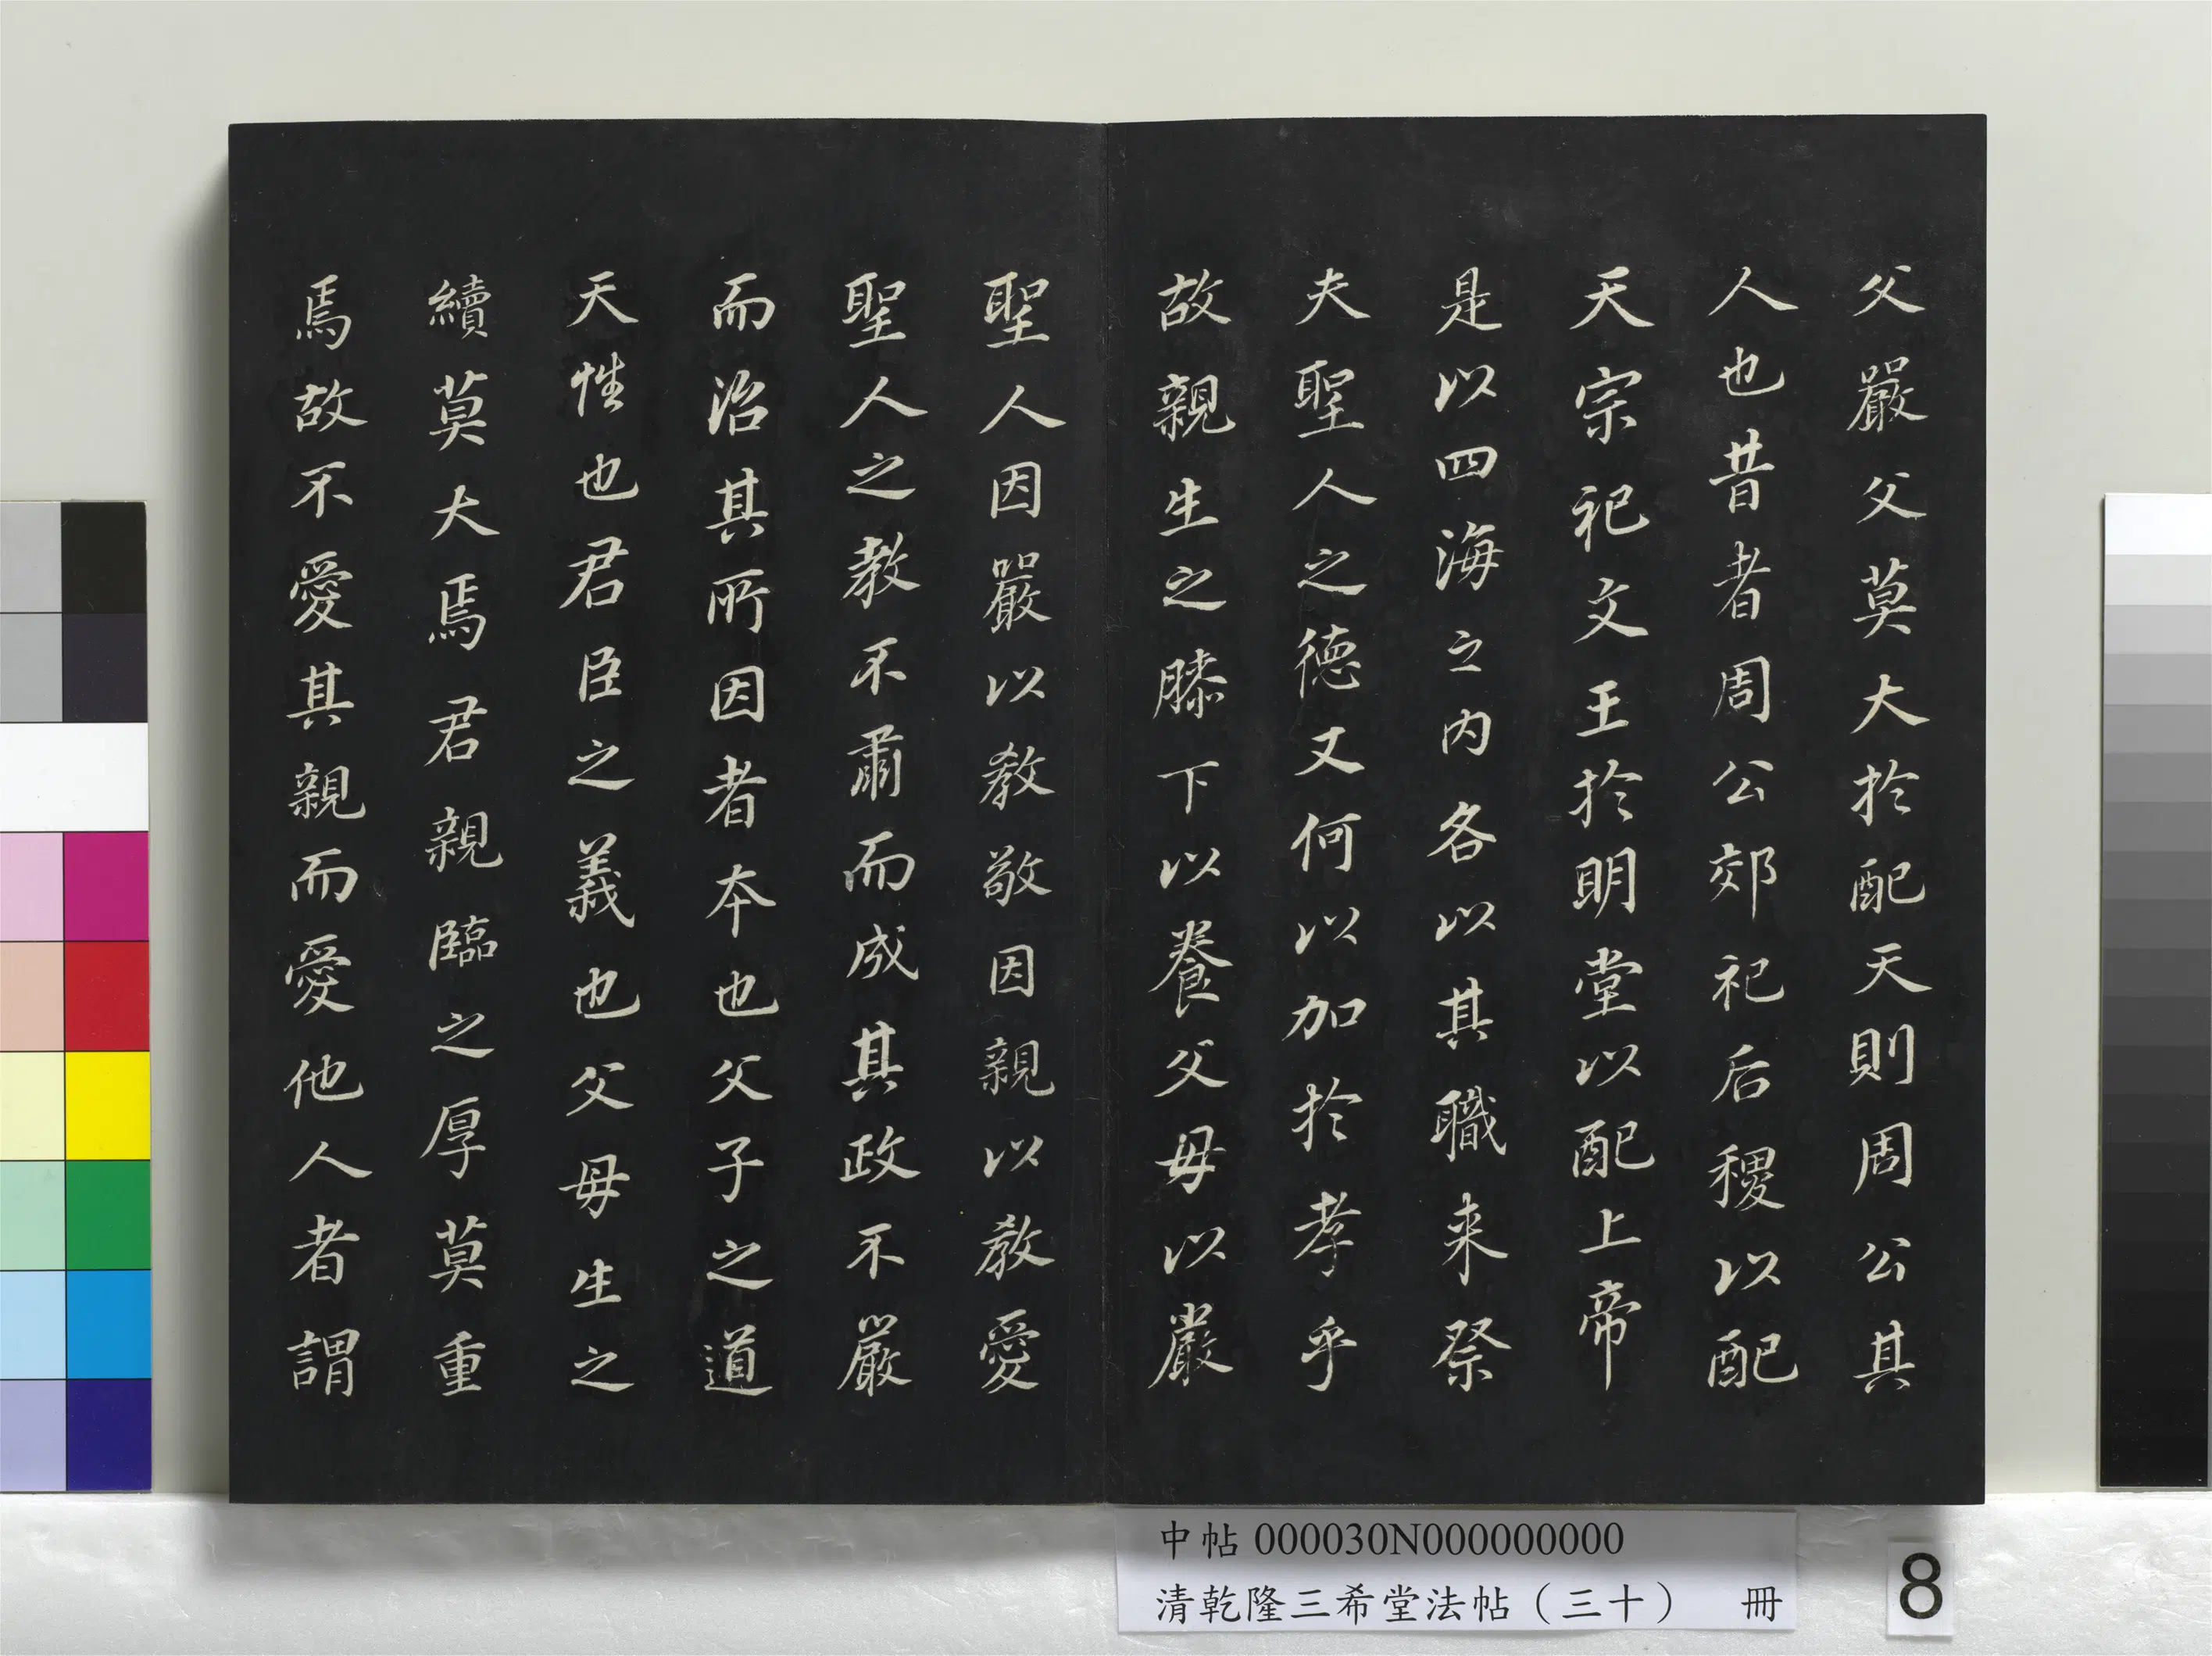 父嚴父莫大於配天則周公其
人也昔者周公郊祀后稷以配
天宗祀文王於明堂以配上帝
是以四海之内各以其職来祭
夫聖人之德又何以加於孝乎
故親生之膝下以養父毋以嚴
聖人因嚴以教敬因親以教愛
聖人之教不肅而成其政不嚴
而治其所因者本也父子之道
天性也君臣之義也父毋生之
續莫大焉君親臨之厚莫重
焉故不愛其親而愛他人者謂
中帖 000030N000000000
清乾隆三希堂法帖（三十） 冊
8